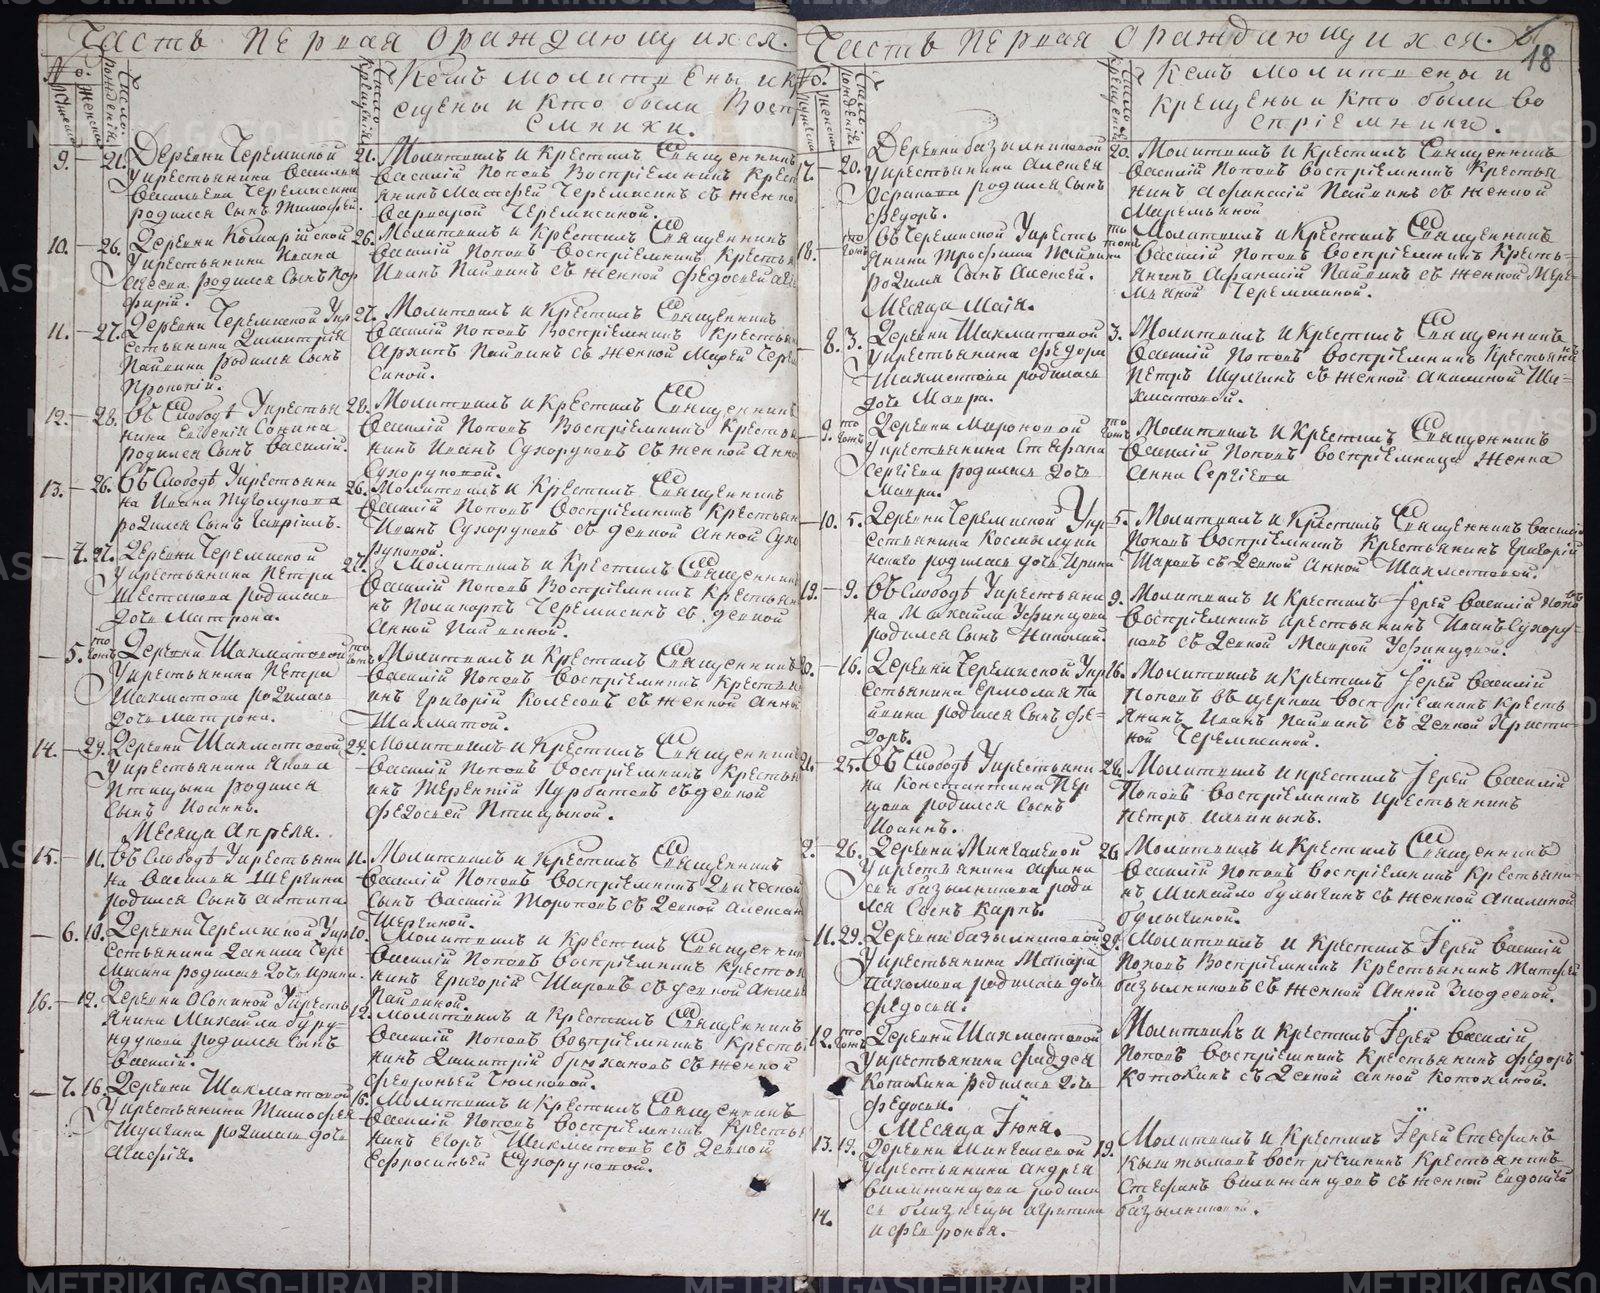 Часть первая ораждающихся.
Число рожденія
Число крещенія
Кемъ молитвены и кр
ещены и кто были Восп
емники.
9. — 21. Деревни Черемиской
Укрестьянина Василья
Васильева Черемисина
родился Сынъ Тимофей.
21. Молитвилъ и Крестилъ Священникъ
Василій Поповъ Воспріемникъ Крест
янинъ Матфей Черемисинъ съ женкой
Варварой Черемисиной.
10. — 26. Деревни Комарійской
Укрестьянина Ивана
родился Сынъ Пор
фирій.
26. Молитвилъ и Крестилъ Священникъ
Василій Поповъ Воспріемникъ Кресть
Иванъ Пайвинъ съ женкой Федосьей
11. — 27. Деревни Черемиской Укр
естьянина Димитрія
Пайвина родился Сынъ
Прокопій.
27. Молитвилъ и Крестилъ Священникъ
Василій Поповъ Воспріемникъ Крестьян
Архипъ Пайвинъ съ женкой Марьей Чере
синой.
12. — 28. Въ Слободѣ Укрестья
нина Евгенія Сонина
родился Сынъ Василій.
28. Молитвилъ и Крестилъ Священникъ
Василій Поповъ Воспріемникъ Крестья
нинъ Иванъ Сухоруковъ съ женкой Анн
Сухоруковой.
13. — 26. Въ Слободѣ Укрестьяни
на Ивана Туголукова
родился Сынъ Гавріилъ.
26. Молитвилъ и Крестилъ Священникъ
Василій Поповъ Воспріемникъ Крестьян
Иванъ Сухоруковъ съ девкой Анной Сухо
руковой.
27. Деревни Черемиской
Укрестьянина Петра
Шестакова родилась
дочь Матрона.
27. Молитвилъ и Крестилъ Священник
Василій Поповъ Воспріемникъ Крестьян
нъ Поликарпъ Черемисинъ съ девкой
Анной Пайвиной.
— 5. Деревни Шахматовой
Укрестьянина Петра
Шахматова родилась
дочь Матрона.
Молитвилъ и Крестилъ Священникъ
Василій Поповъ Воспріемникъ Крестьян
инъ Григорій Колесовъ съ женкой Анн
Шахматой.
14. — 29. Деревни Шахматовой
Укрестьянина Якова
Птицына родился
Сынъ Иоаннъ.
29. Молитвилъ и Крестилъ Священникъ
Василій Поповъ Воспріемникъ Крестья
инъ Терентій Курбатовъ съ девкой
Федосьей Птицыной.
Месяца Апреля.
15. — 11. Въ Слободѣ Укрестьяни
на Василья Шергина
родился Сынъ Антипа.
11. Молитвилъ и Крестилъ Священникъ
Василій Поповъ Воспріемникъ Дьячьской
Сынъ Василій Тороповъ съ Девкой Алексан
Шергиной.
— 6. 10. Деревни Черемиской Укр
естьянина Данила Чере
мисина родилась дочь Ирина.
10. Молитвилъ и Крестилъ Священник
Василій Поповъ Воспріемникъ Крестья
нинъ Григорій Шаровъ съ девкой
Пайвиной.
16. — 12. Деревни Осокиной Укресть
янина Михайла Буру-
ндукова родился Сынъ
Василій.
12. Молитвилъ и Крестилъ Священникъ
Василій Поповъ Воспріемникъ Кресть
нинъ Димитрій Брюхановъ съ женкой
Февроньей Тюликовой.
— 7. 16. Деревни Шахматовой
Укрестьянина Тимофея
Шулгина родилась дочь
Агафія.
16. Молитвилъ и Крестилъ Священникъ
Василій Поповъ Воспріемникъ Кресть
нинъ Егоръ Шахматовъ съ Девкой
Ефросиньей Сухоруковой.
Часть первая ораждающихся.
18
Число рожденія
Число крещенія
Кемъ молитвены и
крещены и кто были во
спріемники.
17. 20. Деревни Базыльниковой
Укрестьянина Алексея
родился Сынъ
Федоръ.
20. Молитвилъ и Крестилъ Священникъ
Василій Поповъ Воспріемникъ Крестья
нинъ Афанасій Пайвинъ съ женкой
Маремьяной
18. Въ Черемиской Укресть
янина Трофима Пайвина
родился Сынъ Алексей.
Молитвилъ и Крестилъ Священникъ
Василій Поповъ Воспріемникъ Кресть-
янинъ Афанасій Пайвинъ съ женкой Маре
мьяной Черемисиной.
Месяца Маія.
8. 3. Деревни Шахматовой
Укрестьянина Федора
Шахматова родилась
дочь Мавра.
3. Молитвилъ и Крестилъ Священникъ
Василій Поповъ Воспріемникъ Крестьянинъ
Петръ Шулгинъ съ женкой Акилиной Ша-
хматовой.
9. Деревни Мироновой
Укрестьянина Стефана
Сергіева родилась дочь
Мавра.
Молитвилъ и Крестилъ Священникъ
Василій Поповъ Воспріемница женка
Анна Сергіева
— 10. 5. Деревни Черемиской Укр
естьянина Космы
родилась дочь Ирина
5. Молитвилъ и Крестилъ Священникъ Василій
Поповъ Воспріемникъ Крестьянинъ Григорій
Шаровъ съ Девкой Анной Шахматовой.
19. — 9. Въ Слободѣ Укрестьяни
на Михайла Уфинцова
родился Сынъ Николай.
9. Молитвилъ и Крестилъ Іерей Василій Поповъ
Воспріемникъ Крестьянинъ Иванъ Сухору-
ковъ съ Девкой Маврой Уфинцовой.
20. — 16. Деревни Черемиской Укр
естьянина Ермолая Па
йвина родился Сынъ Фе-
доръ.
16. Молитвилъ и Крестилъ Іерей Василій
Поповъ въ церкви Воспріемникъ Кресть
янинъ Иванъ Пайвинъ съ Девкой Христи
ной Черемисиной.
21. — 25. Въ Слободѣ Укрестьяни
на Константина Пер
цова родился Сынъ
Иоаннъ.
Молитвилъ и Крестилъ Іерей Василій
Поповъ Воспріемникъ Крестьянинъ
Петръ Ильиныхъ.
26. Деревни Мингалевой
Укрестьянина
Базыльникова роди
лся Сынъ Карпъ.
26. Молитвилъ и Крестилъ Священникъ
Василій Поповъ Воспріемникъ Крестьяни-
нъ Михайло Булыгинъ съ женкой Акилиной
Булыгиной.
— 11. 29. Деревни Базыльниковой
Укрестьянина Макара
Пахомова родилась дочь
Федосья.
29. Молитвилъ и Крестилъ Іерей Василій
Поповъ Воспріемникъ Крестьянинъ Матфей
Базыльниковъ съ женкой Анной
12. Деревни Шахматовой
Укрестьянина Фаддея
Котюхина родилась дочь
Федосья.
Молитвилъ и Крестилъ Іерей Василій
Поповъ Воспріемникъ Крестьянинъ Федоръ
Котюхинъ съ Девкой Анной Котюхиной.
Месяца Іюня.
13. 19. Деревни Мингалевой
Укрестьянина Андрея
родили
сь близнецы Агрипина
14. и Февронья.
19. Молитвилъ и Крестилъ Іерей Стефанъ
Кыштымовъ Воспріемникъ Крестьянинъ
Стефанъ съ женкой Евдокіей
Базыльниковой.
METRIKI.GASO-URAL.RU